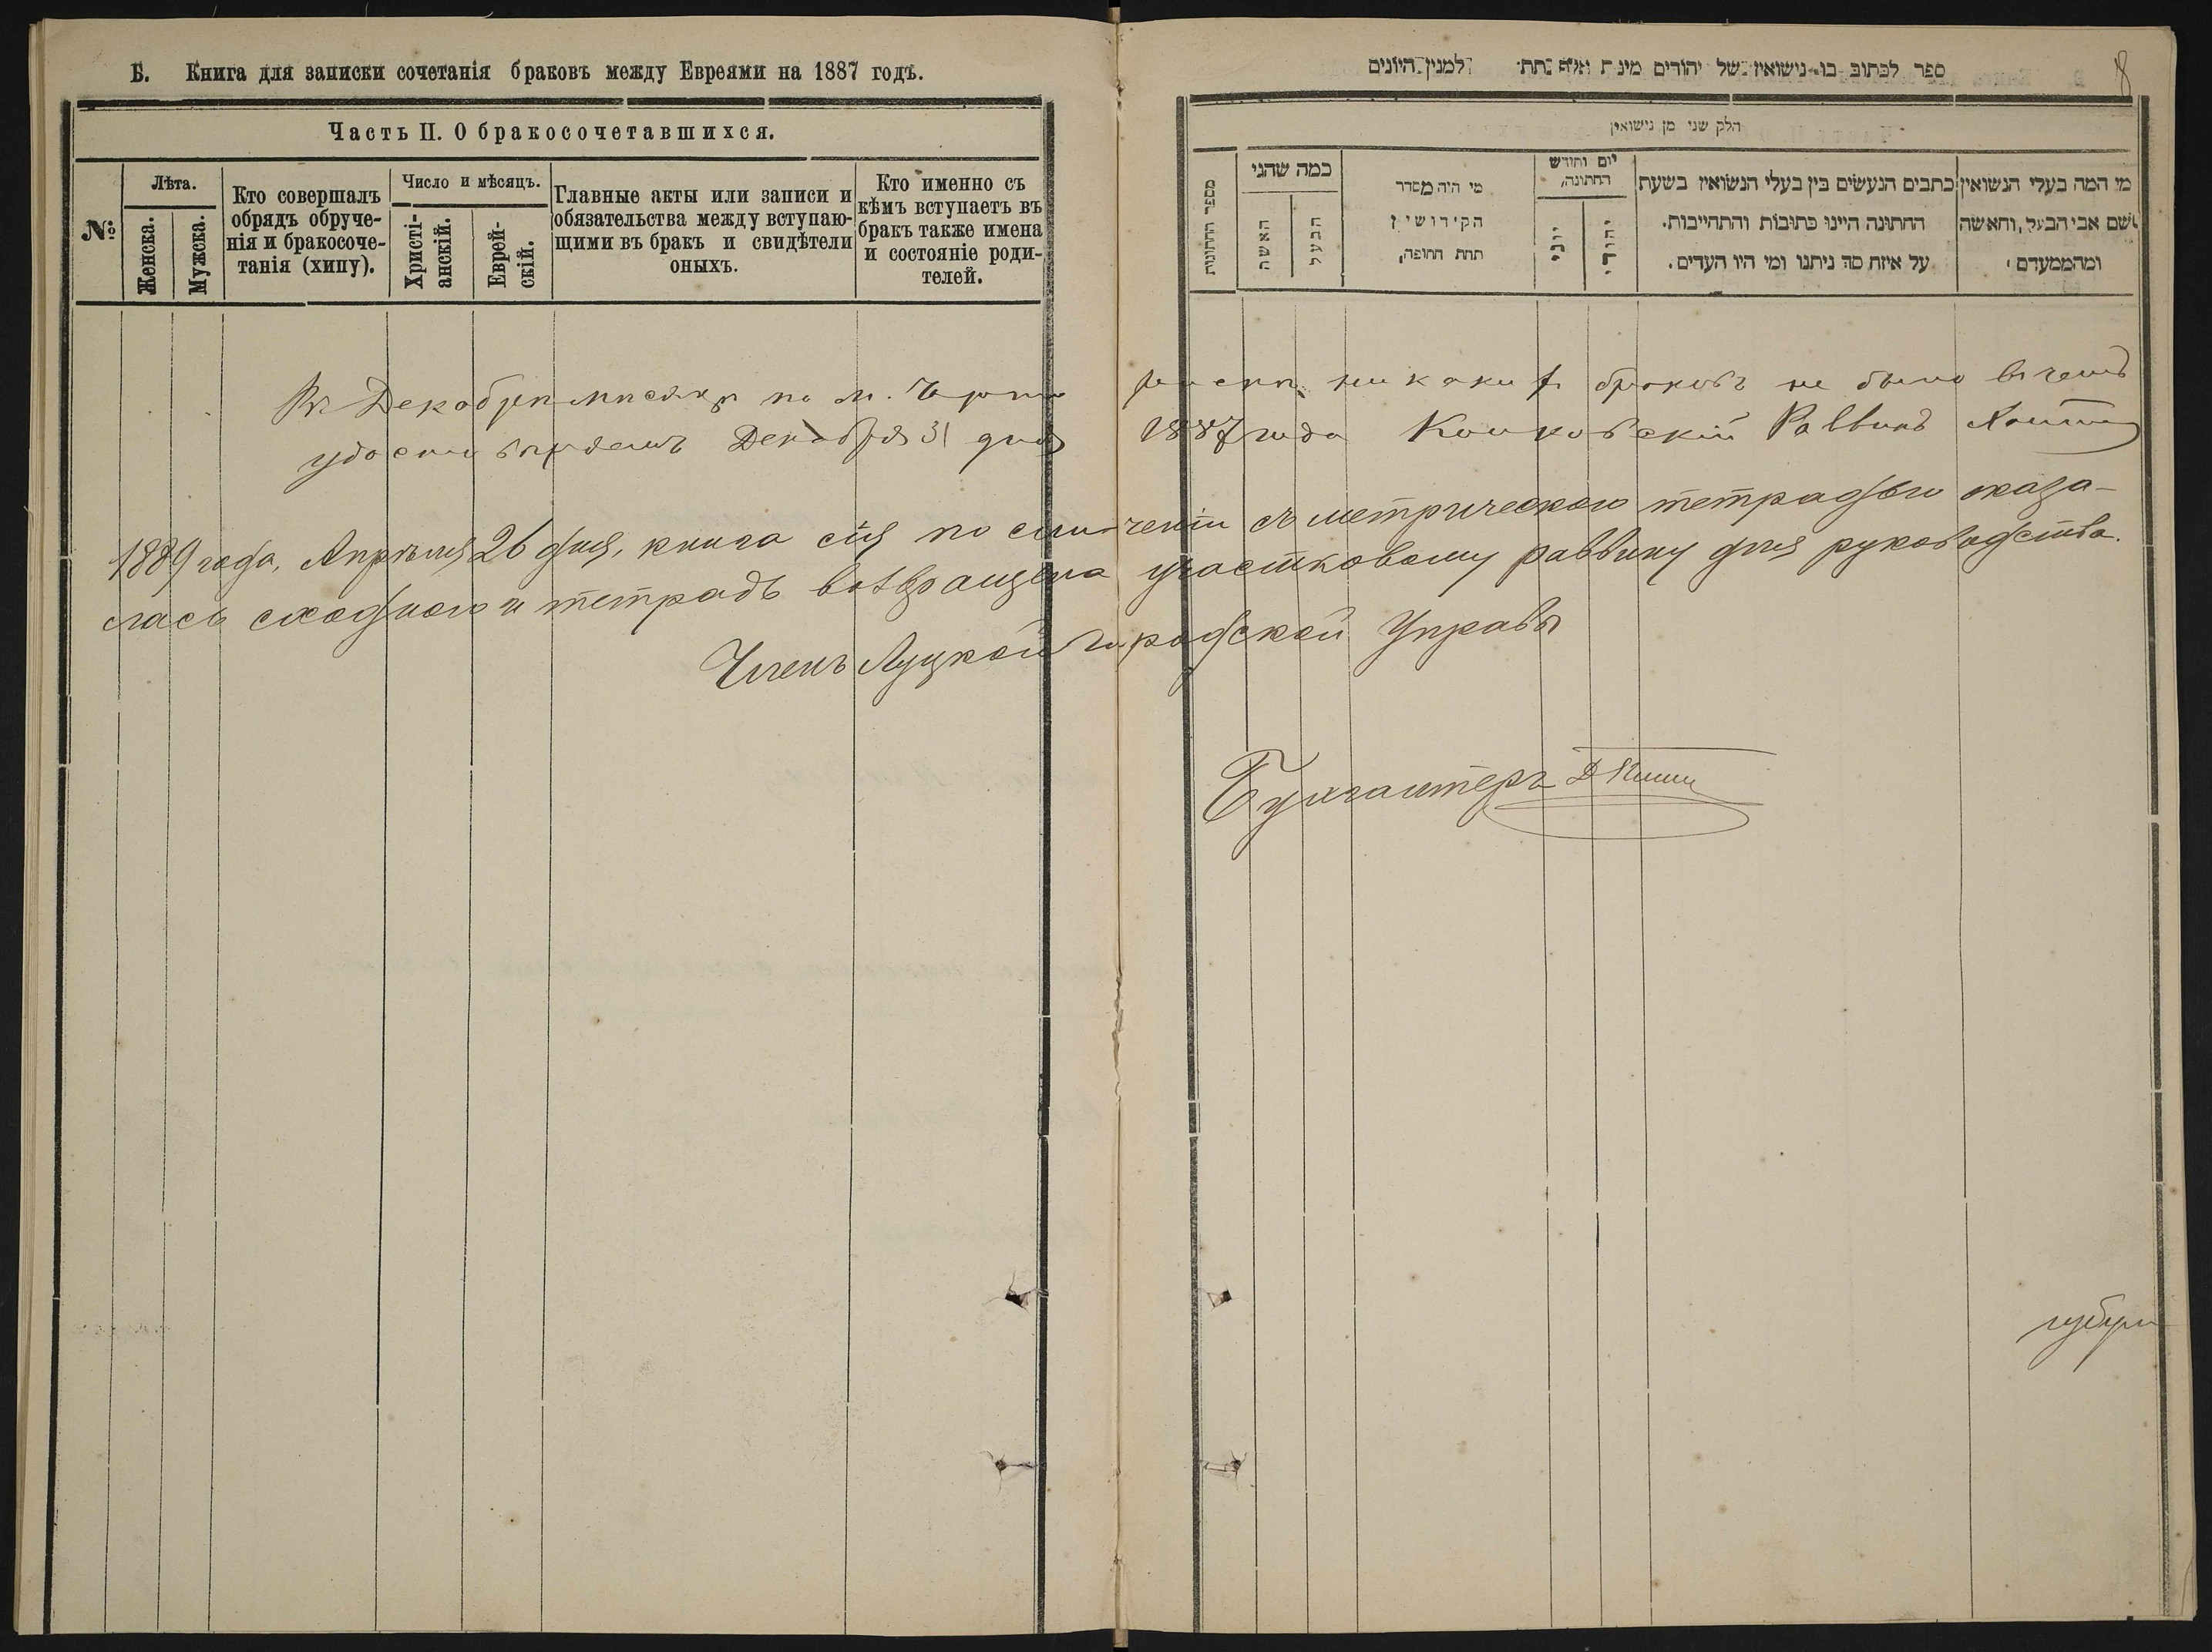 Б. Книга для записки сочетанія браковъ между Евреями на 1887 годъ.
Часть II. О бракосочетавшихся.
№
Лѣта.
Женска.
Мужска.
Кто совершалъ
обрядъ обруче-
нія и бракосоче-
танія (хипу).
Число и мѣсяцъ.
Христі-
анскій.
Еврей-
скій.
Главные акты или записи и
обязательства между вступаю-
щими въ бракъ и свидѣтели
оныхъ.
Кто именно съ
кѣмъ вступаетъ въ
бракъ также имена
и состояніе роди-
телей.
ספר לכתוב בו נישואין של יהודים מינת אלף תת למנין היונים
8
חלק שני מן נישואין
מי המה בעלי הנשואין
ושם אבי הבעל, והאשה
ומהממעדם
כתבים הנעשים בין בעלי הנשואין בשעת
החתונה היינו כתובות והתחייבות.
על איזה סך ניתנו ומי היו העדים.
יום וחודש
החתונה,
יהודי
יוני
מי היה מסדר
הקידושין
תחת החופה,
כמה שהני
הבעל
האשה
מספר החתונות
Въ Декабрѣ мѣсяцѣ по м. никакихъ браковъ не было въ чемъ
Декабря 31 дня 1887 года Раввинъ
1889 года, Апрѣля 26 дня, книга сія по сличеніи съ метрическою тетрадью оказа-
лась сходною и тетрадь возвращена участковому раввину для руководства.
Членъ Луцкой Городской Управы
Бухгалтеръ